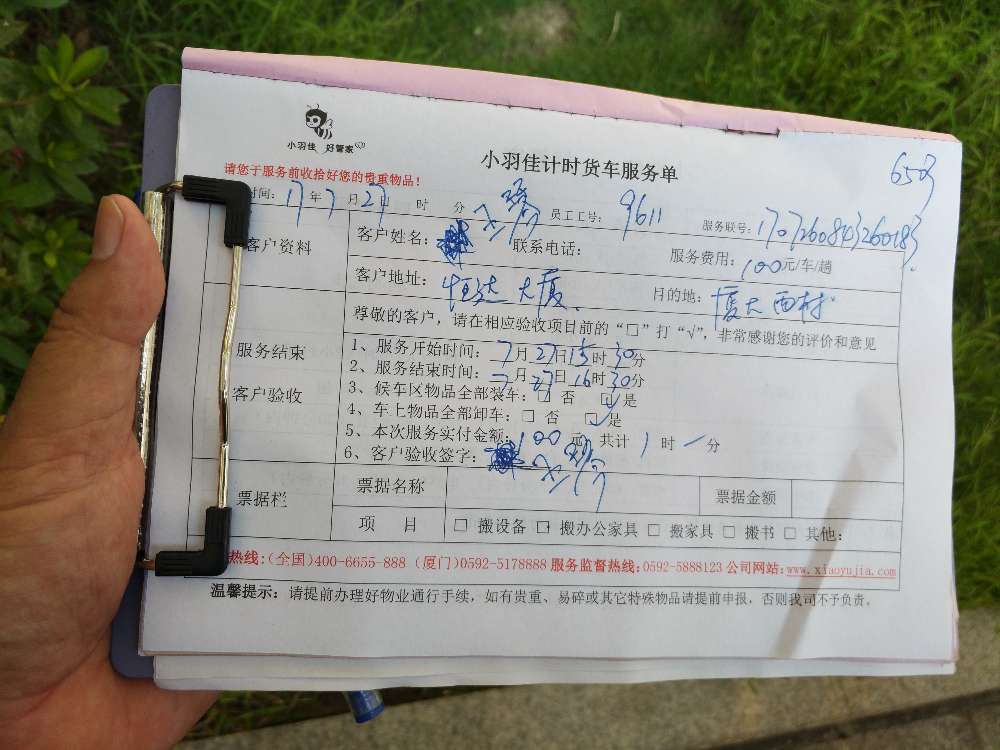 小羽佳 好管家
小羽佳计时货车服务单
请您于服务前收拾好您的贵重物品！
时间: 17年7月27日 时 分 员工工号: 9611 服务联号:
客户资料 客户姓名: 联系电话: 服务费用: 100元/车/趟
客户地址: 恒达大厦 目的地: 厦大西村
尊敬的客户，请在相应验收项目前的“□”打“√”，非常感谢您的评价和意见
服务结束
客户验收
1、服务开始时间: 7月27日15时30分
2、服务结束时间: 7月27日16时30分
3、候车区物品全部装车: □ 否 ☑ 是
4、车上物品全部卸车: □ 否 ☑ 是
5、本次服务实付金额: 100元 共计 1 时 一 分
6、客户验收签字:
票据栏 票据名称 票据金额
项 目 □ 搬设备 □ 搬办公家具 □ 搬家具 □ 搬书 □ 其他:
热线:(全国)400-6655-888 (厦门)0592-5178888 服务监督热线:0592-5888123 公司网站:www.xiaoyujia.com
温馨提示: 请提前办理好物业通行手续，如有贵重、易碎或其它特殊物品请提前申报，否则我司不予负责。